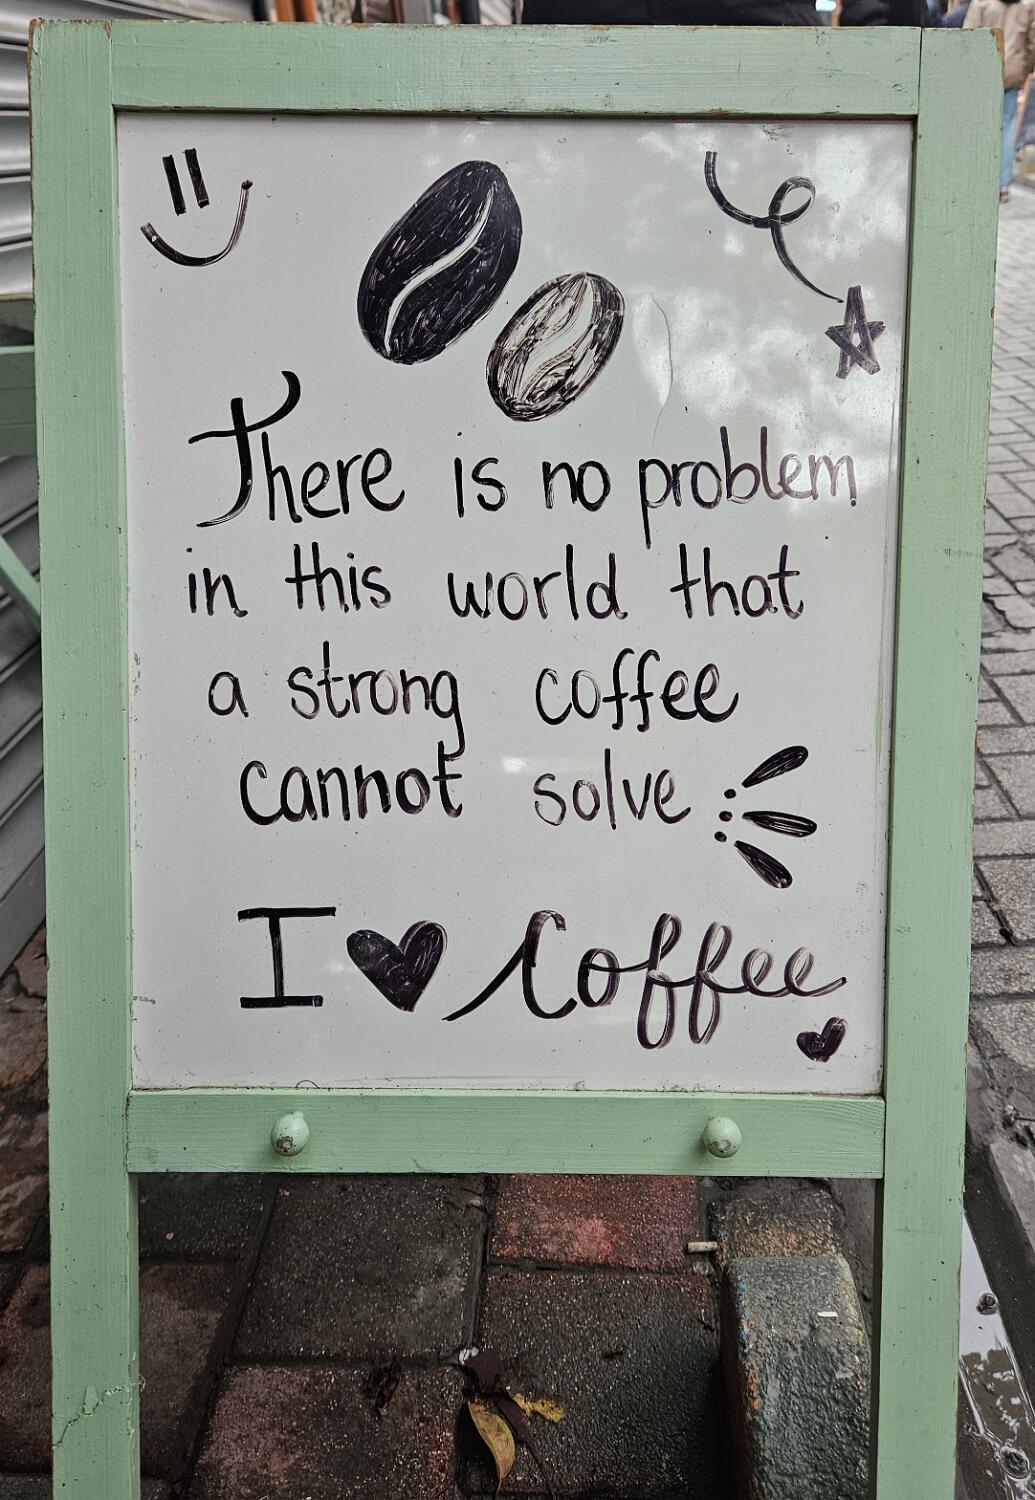 There is no problem
in this world that
a strong coffee
cannot solve
I ♥ Coffee